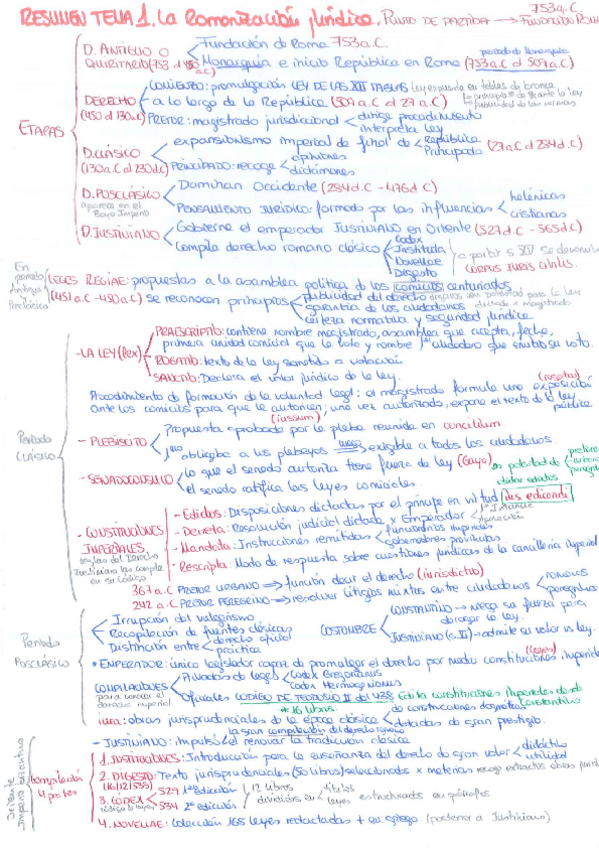 RESUMEN TEMA 1. La Romanización jurídica. PUNTO DE PARTIDA → 753 a.C. FUNDACIÓN ROMA
ETAPAS
D. ANTIGUO O QUIRITARIO (753 al 450 a.C)
Fundación de Roma 753 a.C.
periodo de Monarquía
Monarquía e inicio República en Roma (753 a.C al 509 a.C)
DERECHO (450 al 130 a.C)
COMIENZO: promulgación LEY DE LAS XII TABLAS
Ley expuesta en tablas de bronce
a lo largo de la República (509 a.C al 27 a.C)
publicidad de las normas
PRETOR: magistrado jurisdiccional
dirige procedimiento
interpreta ley
D. CLÁSICO (130 a.C al 230 d.C)
expansionismo imperial de final de
República
Principado
(27 a.C al 234 d.C)
PRINCIPADO: recoge
opiniones
dictámenes
D. POSCLÁSICO
aparece en el Bajo Imperio
Dominan Occidente (234 d.C - 476 d.C)
PENSAMIENTO JURÍDICO: formado por las influencias
helénicas
cristianas
D. JUSTINIANO
Gobierna el emperador JUSTINIANO en Oriente (527 d.C - 565 d.C)
Compila derecho romano clásico
Codex
Instituta
Novellae
Digesto
CORPUS IURIS CIVILIS.
En periodo Antiguo y Preclásico
LEGES REGIAE: propuestas a la asamblea política de los comicios centuriados
(451 a.C - 450 a.C) se reconocen principios
publicidad del derecho
garantía de los ciudadanos
certeza normativa y seguridad jurídica
Periodo CLÁSICO
- LA LEY (lex)
PRAESCRIPTIO: contiene nombre magistrado, asamblea que acepta, fecha,
primera unidad comicial que la vota y nombre del ciudadano que emitió su voto.
ROGATIO: texto de la ley sometido a votación
SANCTIO: Declara el valor jurídico de la ley.
Procedimiento de formación de la voluntad legal: el magistrado formula una exposición (rogatio)
ante los comicios para que le autoricen; una vez autorizado, expone el texto de la ley
(iussum)
pública
- PLEBISCITO
Propuesta aprobada por la plebe reunida en concilium.
obligaba a los plebeyos luego exigible a todos los ciudadanos
- SENADOCONSULTO
lo que el senado autoriza tiene fuerza de ley (Gayo)
el senado ratifica las leyes comiciales
potestad de dictar edictos
- CONSTITUCIONES IMPERIALES
- Edictos: Disposiciones dictadas por el príncipe en virtud ius edicendi
- Decreta: Resolución judicial dictada x Emperador
1ª Instancia
apelación
- Mandata: Instrucciones remitidas
funcionarios imperiales
gobernadores provinciales
- Rescripta: Modo de respuesta sobre cuestiones jurídicas de la cancillería imperial
367 a.C PRETOR URBANO → función decir el derecho (iurisdictio)
242 a.C PRETOR PEREGRINO → resolver litigios mixtos entre ciudadanos
romanos
peregrinos
Periodo POSCLÁSICO
- Irrupción del vulgarismo
- Recopilación de fuentes clásicas
- Distinción entre
derecho oficial
práctica
COSTUMBRE
CONSTANTINO → niega su fuerza para derogar la ley.
JUSTINIANO → admite su valor vs ley.
* EMPERADOR: único legislador capaz de promulgar el derecho por medio constituciones imperiales
(leges)
COMPILACIONES
para conocer el derecho imperial
Privados de leges
Codex Gregorianus
Codex Hermogenianus
Oficiales CÓDIGO DE TEODOSIO II del 438
* 16 libros.
Edita constituciones imperiales desde Constantino
iura: obras jurisprudenciales de la época clásica
dotadas de gran prestigio.
Oriente
Imperio Bizantino
- JUSTINIANO: impulsó el renovar la tradición clásica
la gran compilación del derecho romano
Compilación 4 partes
1. INSTITUCIONES: Introducción para la enseñanza del derecho de gran valor
didáctico
utilidad
2. DIGESTO: Texto jurisprudenciales (50 libros) seleccionados x materias
(16/12/533)
3. CÓDEX
529 1ª edición
534 2ª edición
12 libros
divididos en
títulos
leyes estructuradas en párrafos
4. NOVELLAE: Colección 165 leyes redactadas + en griego (posterior a Justiniano)